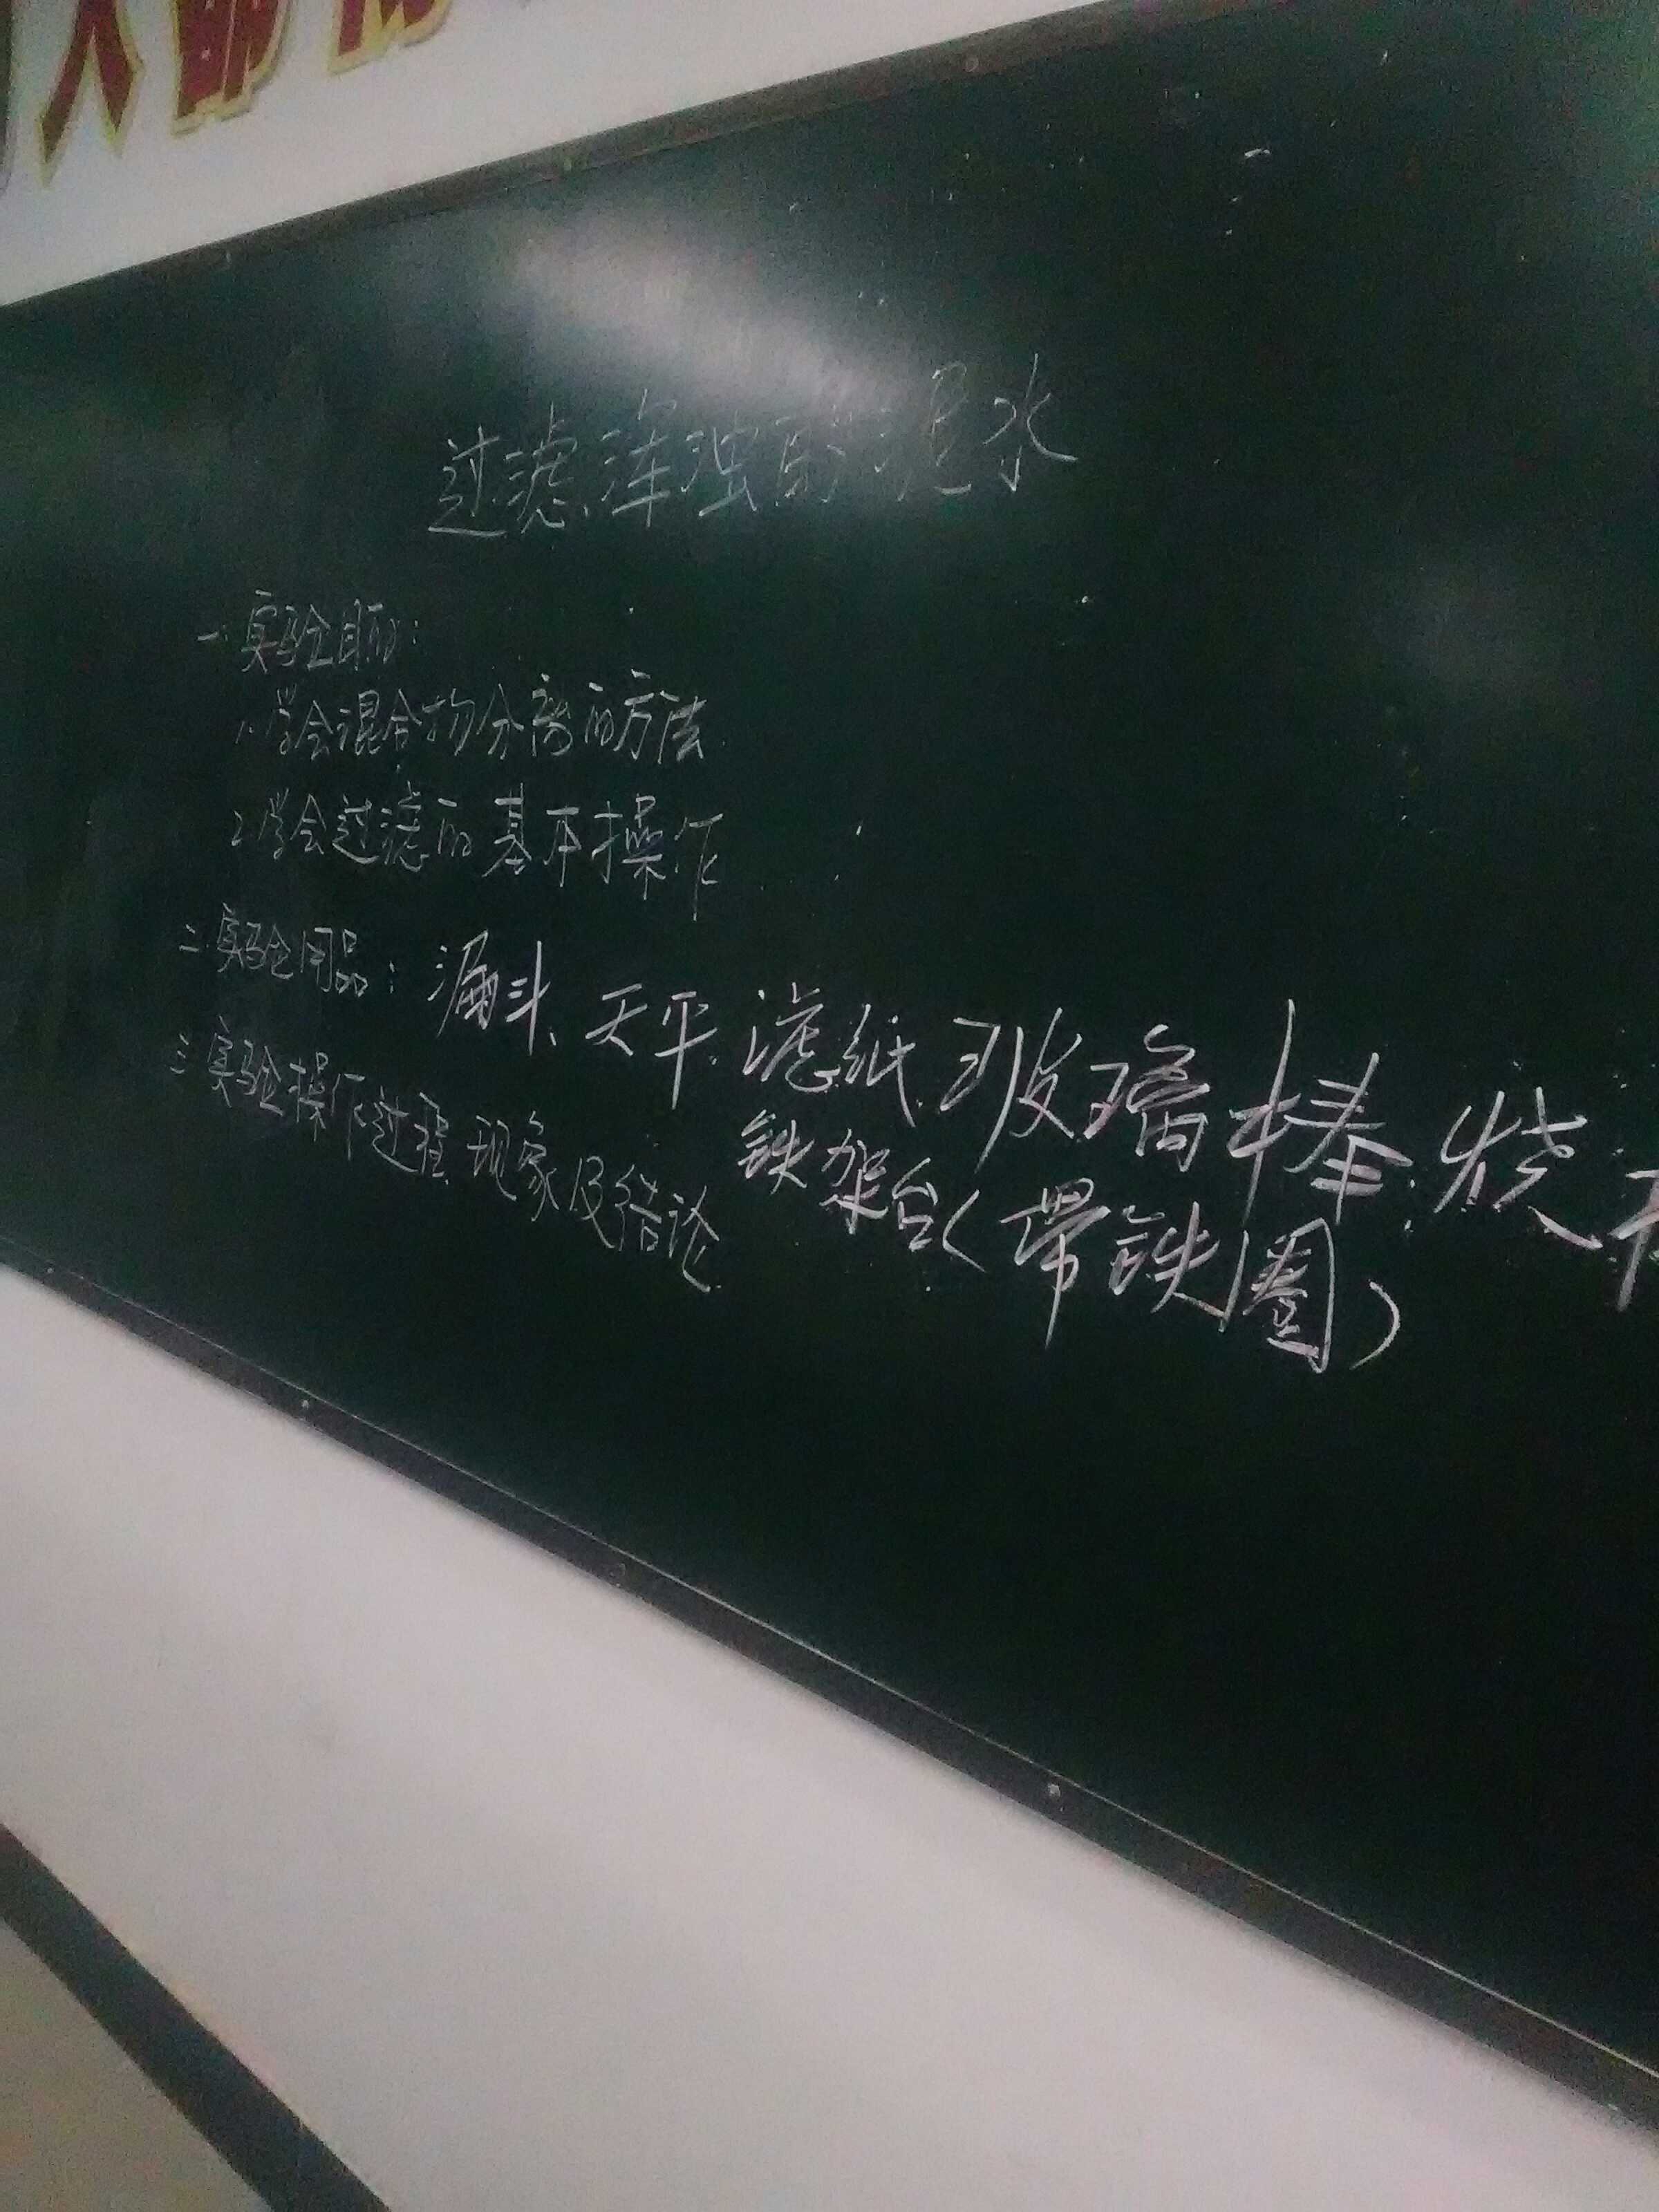 过滤浑浊的泥水
一.实验目的:
1.学会混合物分离的方法.
2.学会过滤的基本操作
二.实验用品:漏斗、天平、滤纸、玻璃棒、烧
铁架台(带铁圈)
三.实验操作过程、现象及结论